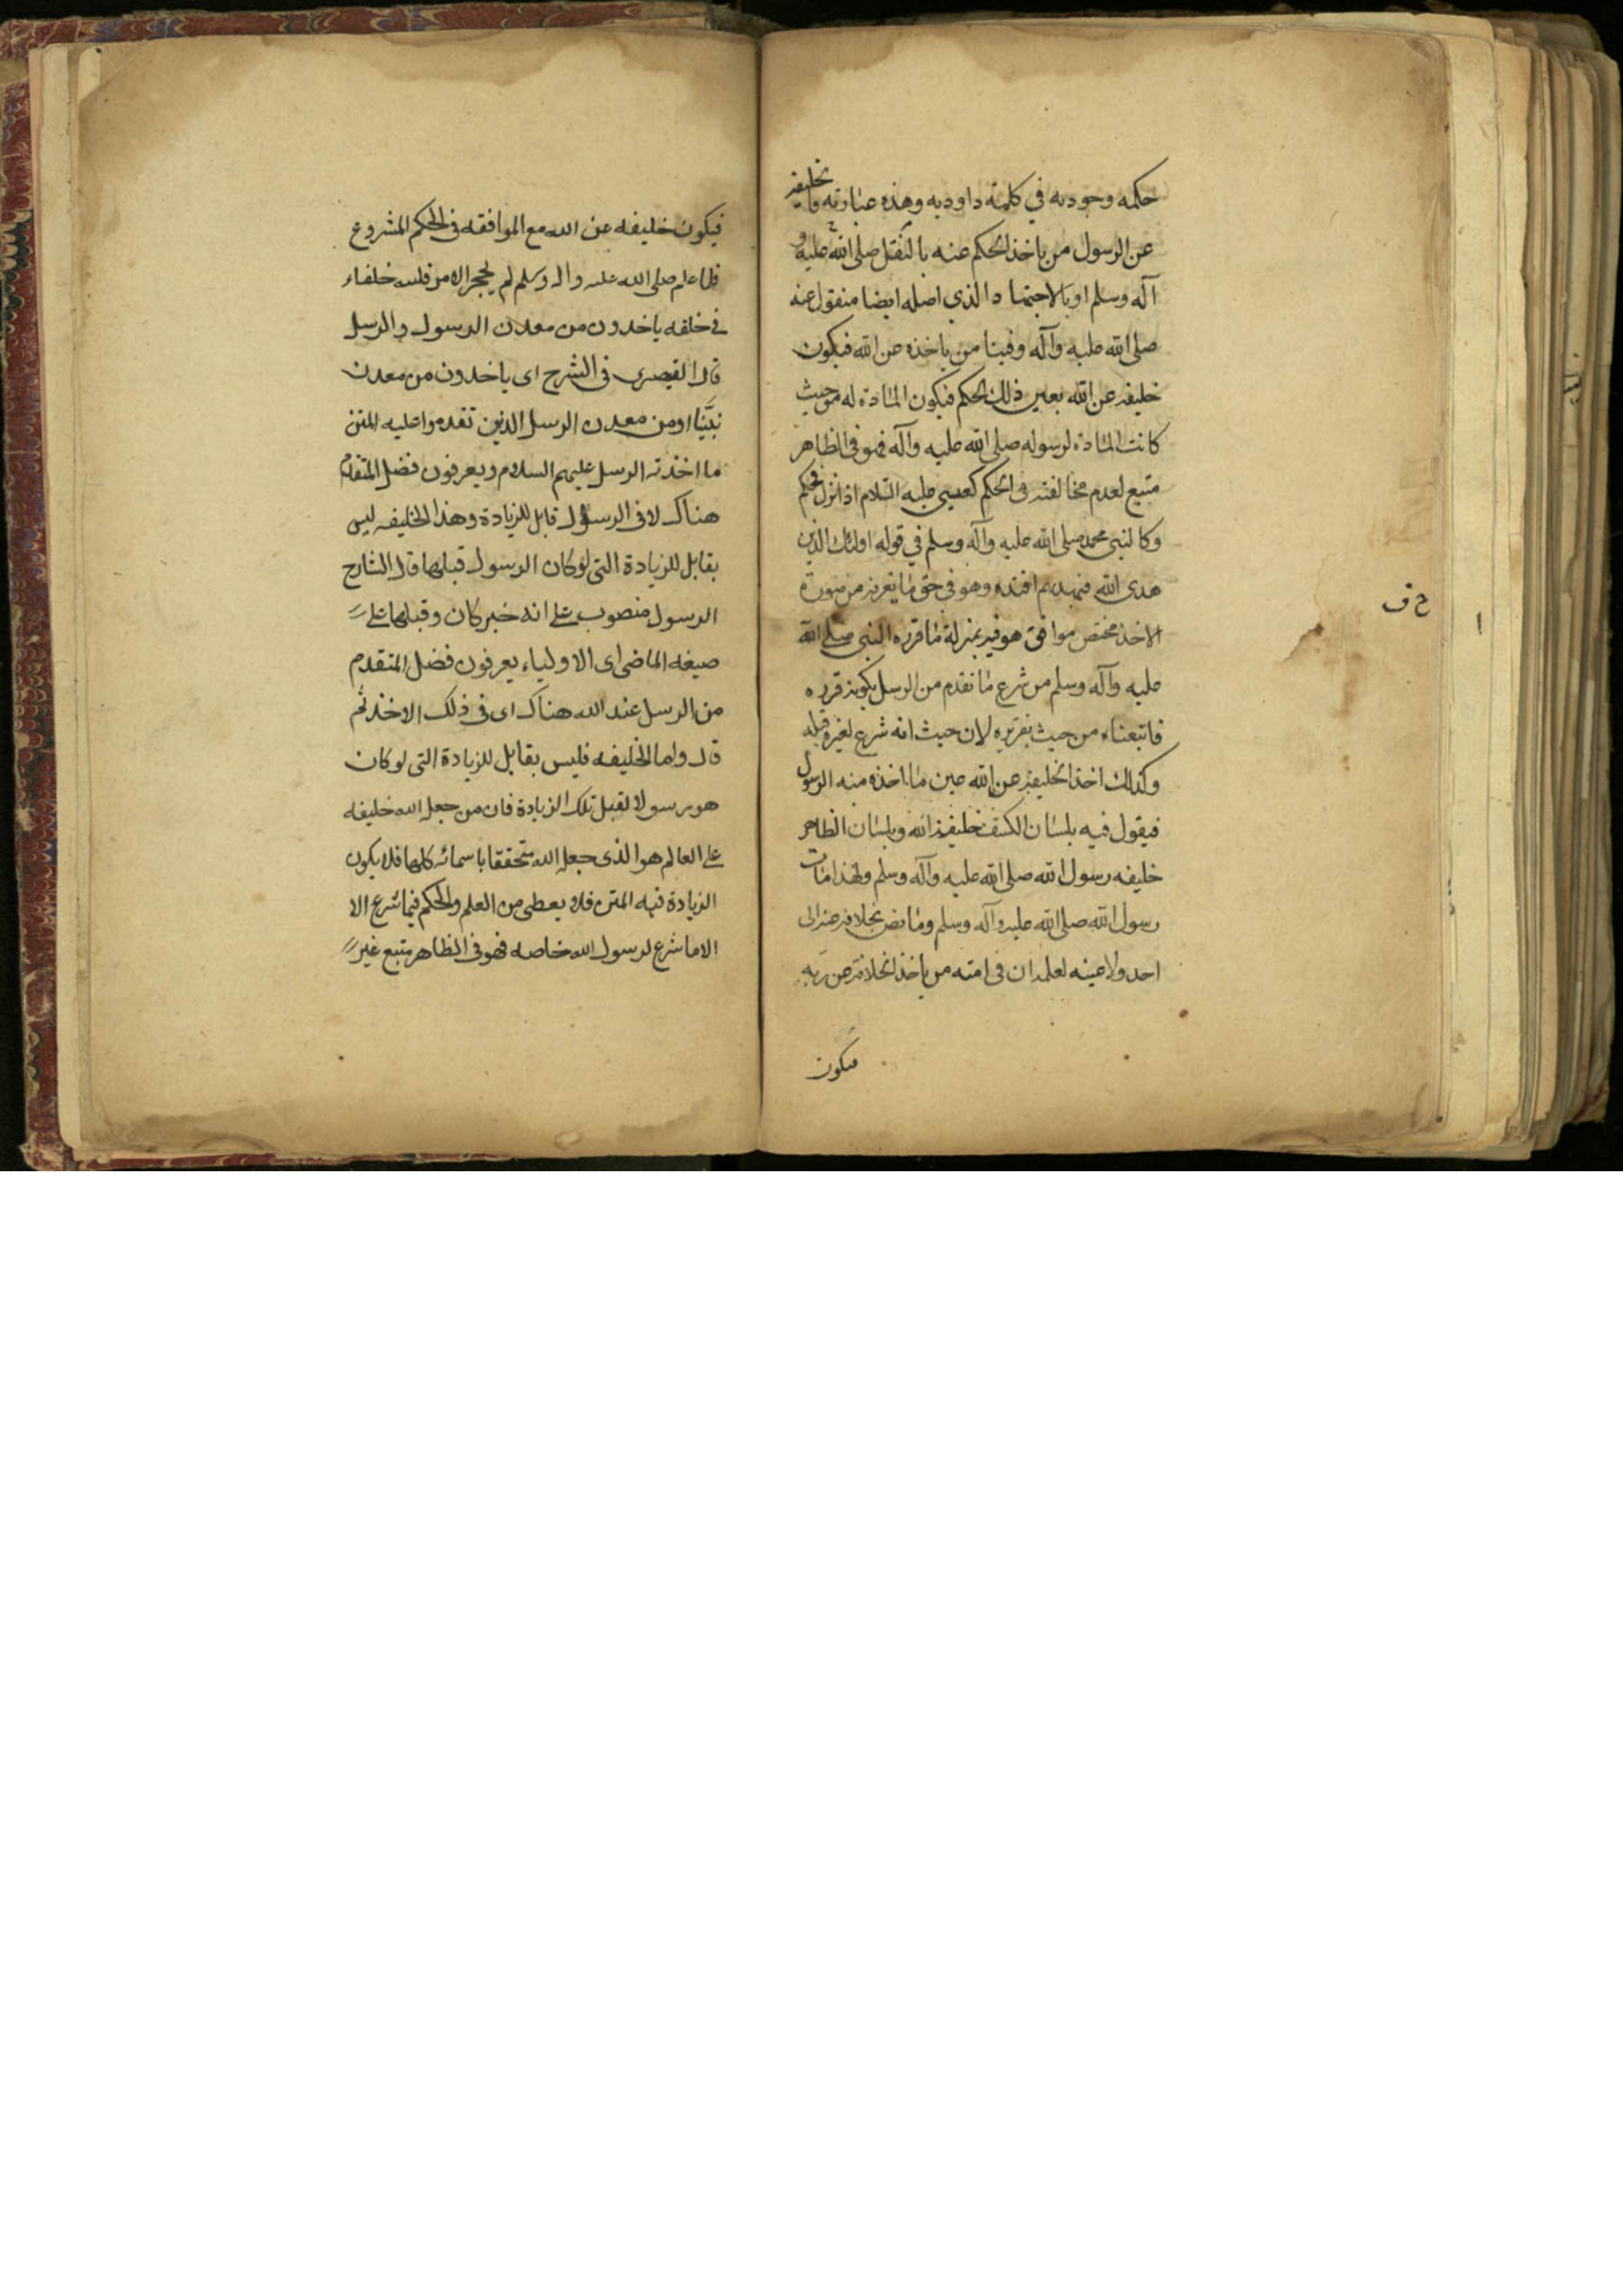 حكمه وجوديه في كلمة داوديه وهذه عبارته والخليفة
عن الرسول من ياخذ الحكم عنه بالنقل صلى الله عليه و
آله وسلم او بالاجتهاد الذي اصله ايضا منقول عنه
صلى الله عليه وآله وفينا من ياخذه عن الله فيكون
خليفة عن الله بعين ذلك الحكم فيكون المادة له من حيث
كانت المادة لرسوله صلى الله عليه وآله فهو في الظاهر
متبع لعدم مخالفته في الحكم كعيسى عليه السلام اذا نزل فحكم
وكالنبي محمد صلى الله عليه وآله وسلم في قوله اولئك الذين
هدى الله فبهديهم اقتده وهو في حق ما يعرفه من صورة
الاخذ مختص موافق هو فيه بمنزلة ما قرره النبي صلى الله
عليه وآله وسلم من شرع ما تقدم من الرسل بكونه قرره
فاتبعناه من حيث تقريره لا من حيث انه شرع لغيره قبله
وكذلك اخذ الخليفة عن الله عين ما اخذه منه الرسول
فيقول فيه بلسان الكشف خليفة الله وبلسان الظاهر
خليفه رسول الله صلى الله عليه وآله وسلم ولهذا مات
رسول الله صلى الله عليه وآله وسلم وما نص بخلافة عنه الى
احد ولا عينه لعلمه ان في امته من ياخذ الخلافة عن ربه
فيكون
ح ف
فيكون خليفه عن الله مع الموافقه في الحكم المشروع
فلما علم صلى الله عليه واله وسلم لم يحجر الامر فلله خلفاء
في خلقه ياخذون من معدن الرسول والرسل
قال القيصرى في الشرح اى ياخذون من معدن
نبيّنا او من معدن الرسل الذين تقدموا عليه المتن
ما اخذته الرسل عليهم السلام ويعرفون فضل المتقدم
هناك لان الرسول قابل للزيادة وهذا الخليفه ليس
بقابل للزيادة التى لو كان الرسول قبلها قال الشارح
الرسول منصوب على انه خبر كان وقبلها على
صيغه الماضى اى الاولياء يعرفون فضل المتقدم
من الرسل عند الله هناك اى فى ذلك الاخذ ثم
قال واما الخليفه فليس بقابل للزيادة التى لو كان
هو رسولا لقبل تلك الزيادة فان من جعله الله خليفه
على العالم هو الذى جعله الله متحققا باسمائه كلها فلا يكون
الزيادة فيه المتن فلا يعطى من العلم والحكم فيما شرع الا
الا ما شرع لرسول الله خاصه فهو فى الظاهر متبع غير